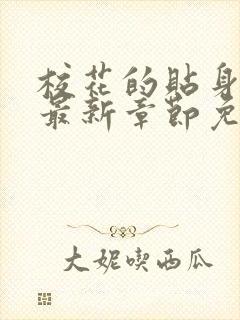 校花的贴身
最新章节免
大妮喫西瓜